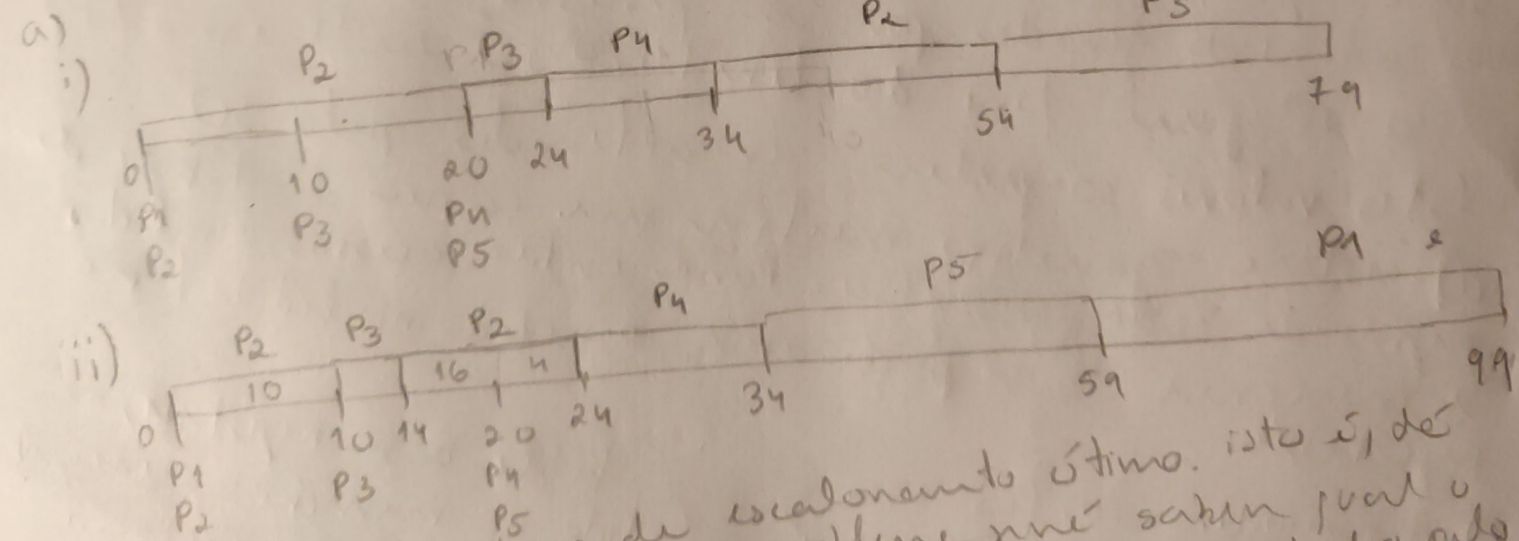 a)
i) P2 P3 P4 P2
0 10 20 24 34 54 79
P1 P3 P4
P2 P5
ii) P2 P3 P2 P4 P5 P1
10 16 4
0 10 14 20 24 34 59 99
P1 P3 P4
P2 P5
de escalonamento ótimo. isto é, dê
saber qual o